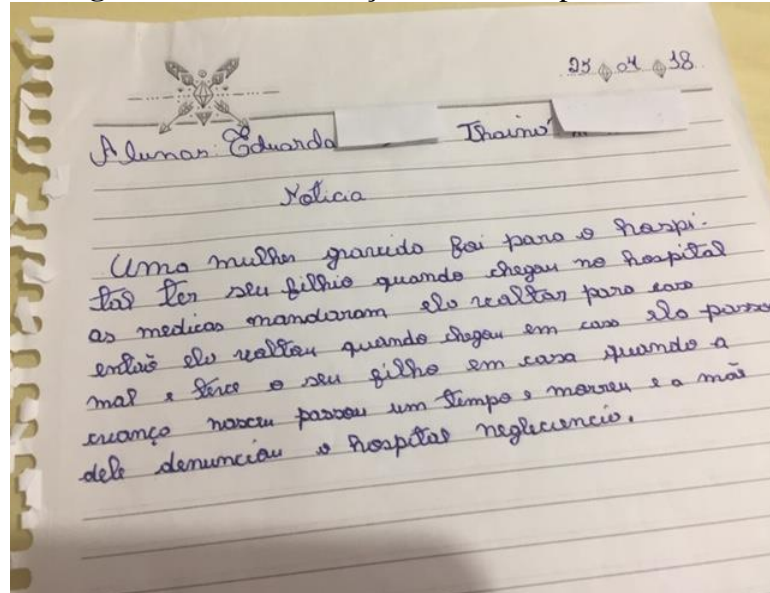 25 04 18
Alunas: Eduarda Thainá
Noticia
Uma mulher gravida foi para o hospi-
tal ter seu filhio quando chegou no hospital
as medicas mandaram ela voltar para casa
então ela voltou quando chegou em casa ela passou
mal e teve o seu filho em casa quando a
criança nasceu passou um tempo e morreu e a mãe
dele denunciou o hospital neglicencia.